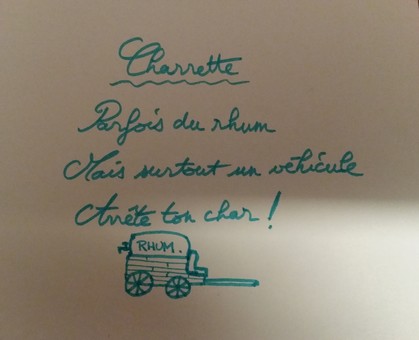 Charrette
Parfois du rhum
Mais surtout un véhicule
Arrête ton char !
RHUM.